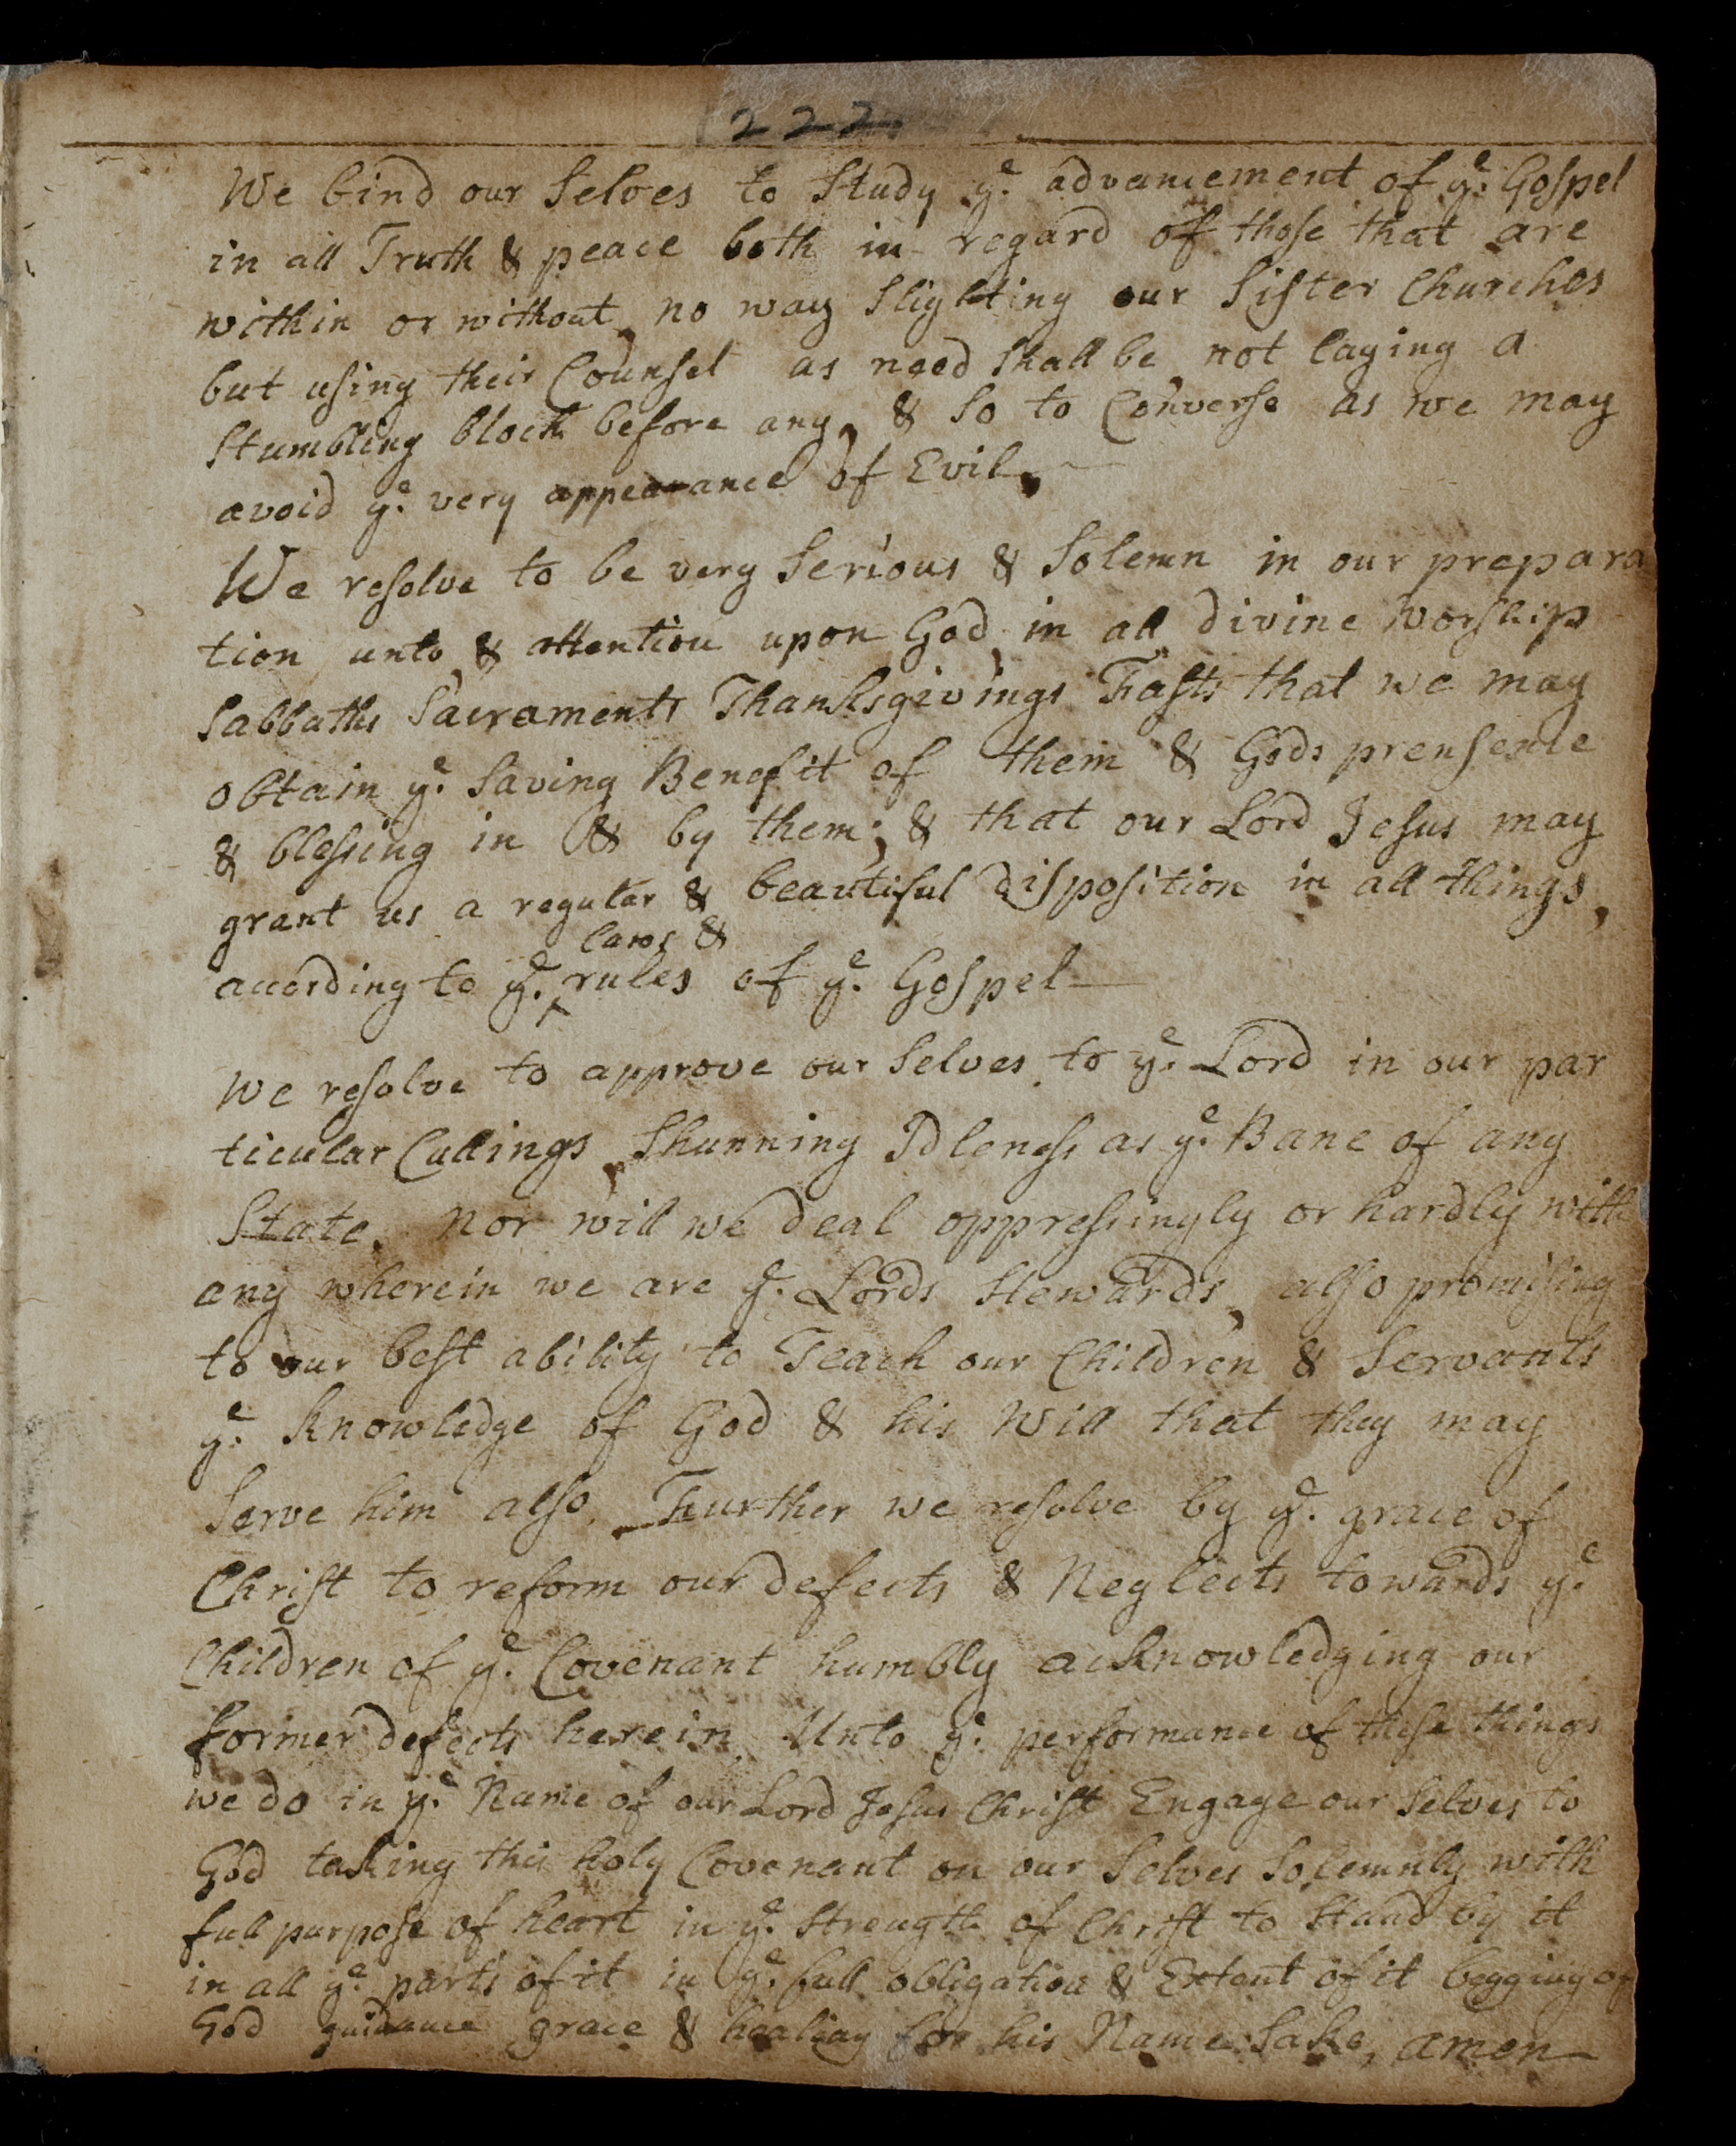 (222.
We bind our Selves to Study ye. advancement of ye. Gospel
in all Truth & peace both in regard of those that are
within or without, no way Slighting our Sister Churches
but using their Counsel as need Shall be, not laying a
Stumbling block before any, & So to Converse as we may
avoid ye. very appearance of Evil,
We resolve to be very Serious & Solemn in our prepara
tion unto, & attention upon God, in all divine worship
Sabbaths Sacraments Thanksgivings Fasts that we may
obtain ye. Saving Benefit of them & Gods prensence
& blessing in & by them; & that our Lord Jesus may
grant us a regular & beautiful disposition in all things,
Laws &
according to ye. ‸ rules of ye. Gospel
We resolve to approve our Selves to ye. Lord in our par
ticular Callings, Shunning Idleness as ye. Bane of any
State. Nor will we deal oppressingly or hardly with
any wherein we are ye. Lords Stewards, also promising
to our best ability to Teach our Children & Servants
ye. knowledge of God & his Will that they may
Serve him also. Further we resolve by ye. grace of
Christ to reform our defects & Neglects towards ye.
Children of ye. Covenant humbly acknowledging our
former defects herein, Unto ye. performance of these things
we do in ye. Name of our Lord Jesus Christ Engage our Selves to
God taking this holy Covenant on our Selves Solemnly with
full purpose of heart in ye. Strength of Christ to Stand by it
in all ye. parts of it in ye. full obligation & Extent of it begging of
God guidance grace & healing for his Name Sake, amen